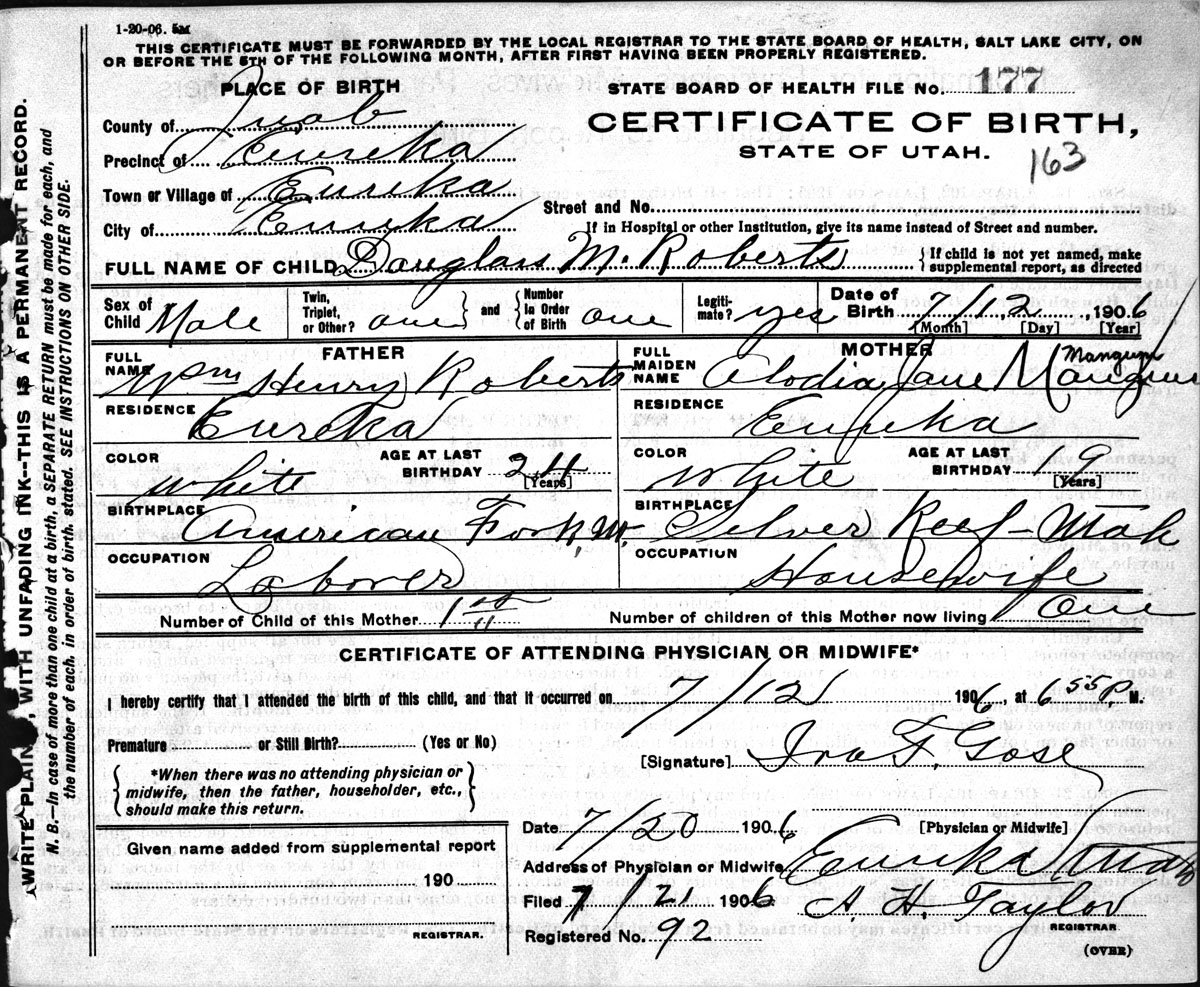 1-20-06. 5M
THIS CERTIFICATE MUST BE FORWARDED BY THE LOCAL REGISTRAR TO THE STATE BOARD OF HEALTH, SALT LAKE CITY, ON
OR BEFORE THE 5TH OF THE FOLLOWING MONTH, AFTER FIRST HAVING BEEN PROPERLY REGISTERED.
PLACE OF BIRTH
STATE BOARD OF HEALTH FILE No. 177
County of Juab
CERTIFICATE OF BIRTH,
Precinct of Eureka
STATE OF UTAH.
163
Town or Village of Eureka
Street and No.
City of Eureka
If in Hospital or other Institution, give its name instead of Street and number.
FULL NAME OF CHILD Douglass M. Roberts
{If child is not yet named, make
supplemental report, as directed
Sex of Child Male
Twin, Triplet, or Other? one } and { Number In Order of Birth one
Legiti-mate? yes
Date of Birth 7/12, 1906
[Month] [Day] [Year]
FATHER
FULL NAME Wm Henry Roberts
MOTHER
FULL MAIDEN NAME Alodia Jane Mangum (Mangum
RESIDENCE Eureka
RESIDENCE Eureka
COLOR White
AGE AT LAST BIRTHDAY 24 [Years]
COLOR White
AGE AT LAST BIRTHDAY 19 [Years]
BIRTHPLACE American Fork, U.
BIRTHPLACE Silver Reef-Utah
OCCUPATION Laborer
OCCUPATION Housewife
Number of Child of this Mother 1st
Number of children of this Mother now living One
CERTIFICATE OF ATTENDING PHYSICIAN OR MIDWIFE*
I hereby certify that I attended the birth of this child, and that it occurred on 7/12 1906, at 6 55 P M.
Premature or Still Birth? (Yes or No)
[Signature] Ira F. Gose
{*When there was no attending physician or
midwife, then the father, householder, etc.,
should make this return.}
Date 7/20 1906
[Physician or Midwife]
Given name added from supplemental report
190
REGISTRAR.
Address of Physician or Midwife Eureka Utah
Filed 7/21 1906 A. H. Taylor
REGISTRAR
Registered No. 92
(OVER)
WRITE PLAIN, WITH UNFADING INK--THIS IS A PERMANENT RECORD.
N. B.--In case of more than one child at a birth, a SEPARATE RETURN must be made for each, and
the number of each, in order of birth, stated. SEE INSTRUCTIONS ON OTHER SIDE.